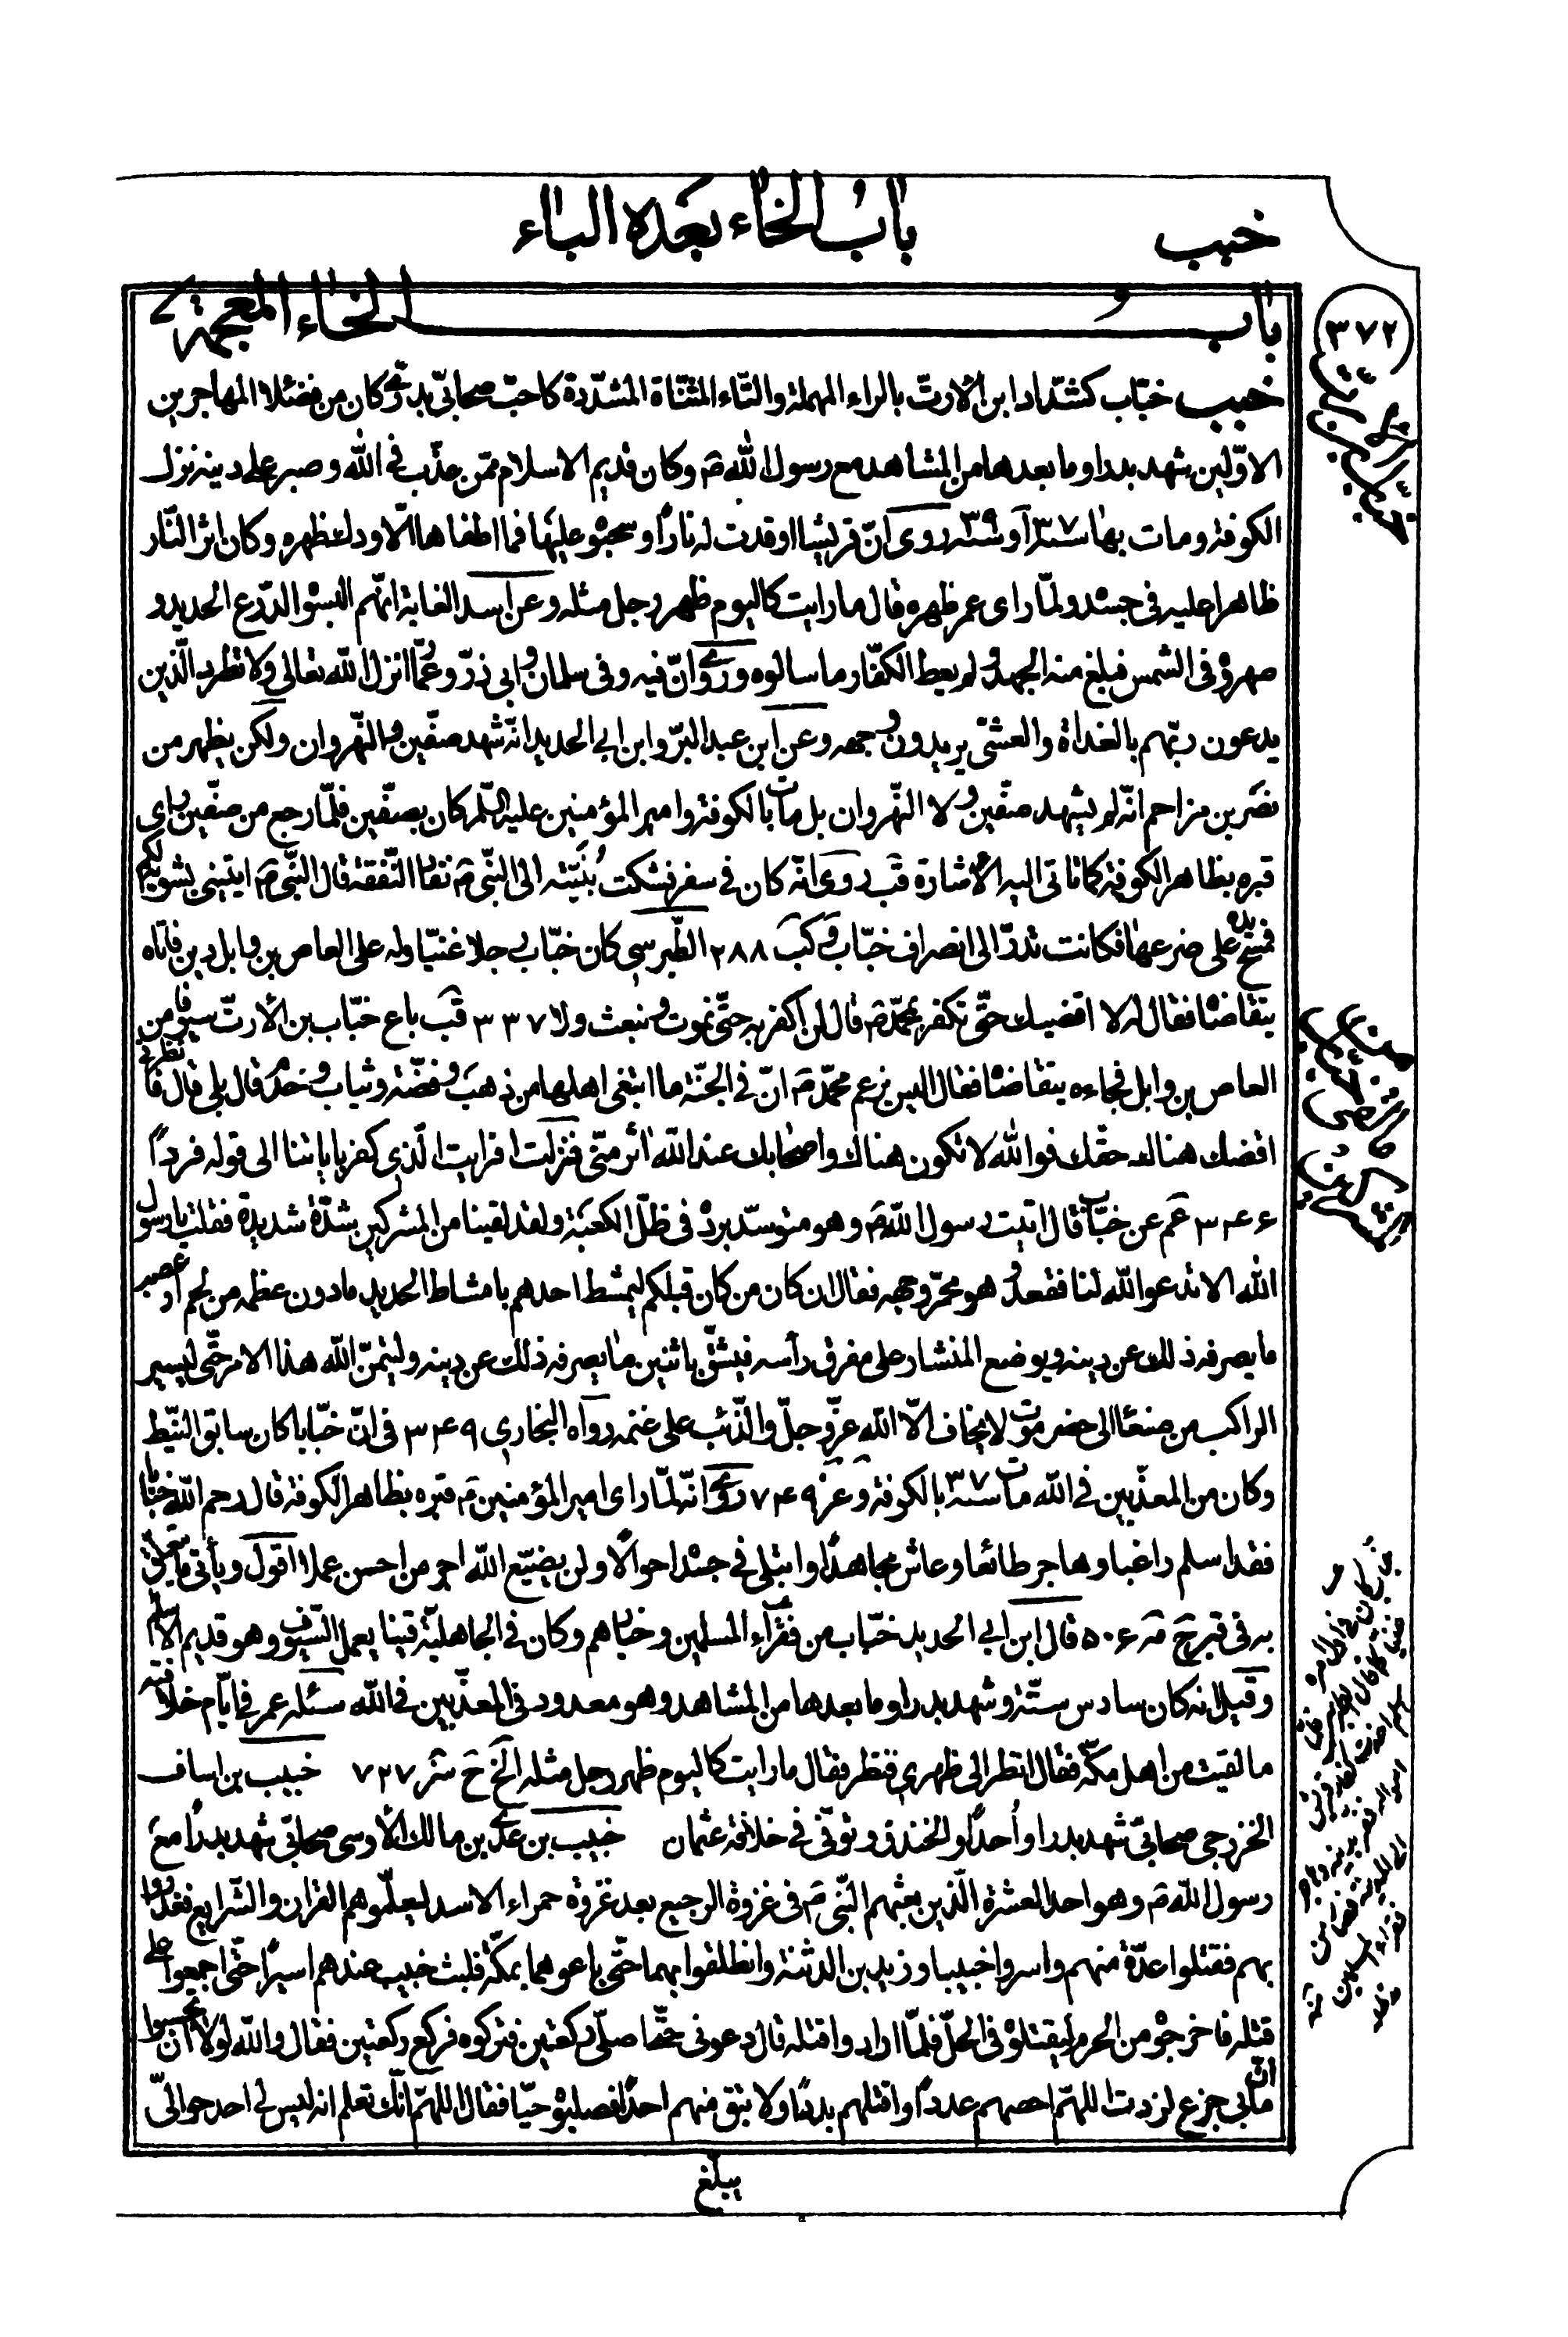 خبب
باب الخاء بعده الباء
٣٧٢
باب الخاء المعجمة
خبب خبّاب كشدّاد ابن الأرتّ بالراء المهملة والتاء المثنّاة المشدّدة كاحبّ صحابيّ بدريّ كان من فضلاء المهاجرين
الاوّلين شهد بدرا وما بعدها من المشاهد مع رسول الله ص وكان قديم الاسلام ممّن عذّب في الله وصبر على دينه نزل
الكوفة ومات بها سنة ٣٧ او سنة ٣٩ روى انّ قريشا اوقدت له نارًا وسحبوه عليها فما اطفاها الّا ودك ظهره وكان اثر النّار
ظاهرا عليه في جسده ولمّا راى عمر ظهره قال ما رايت كاليوم ظهر رجل مثله وعن اسد الغابة انّهم البسوه الدّرع الحديد و
صهروه في الشمس فبلغ منه الجهد ولم يعط الكفّار ما سالوه وروى انّ فيه وفي سلمان وابي ذرّ وعمّار انزل الله تعالى ولا تطرد الّذين
يدعون ربّهم بالغداة والعشيّ يريدون وجهه وعن ابن عبد البرّ وابن ابي الحديد انّه شهد صفّين والنّهروان ولكن يظهر من
نصر بن مزاحم انّه لم يشهد صفّين ولا النّهروان بل مات بالكوفة وامير المؤمنين عليه السّلم كان بصفّين فلمّا رجع من صفّين راى
قبره بظاهر الكوفة كما تاتي اليه الأشارة قب روى انّه كان في سفر فشكت بُنَيّته الى النّبي ص نفاد النّفقة قال النّبي ص ايتيني بشويهة لكم
فمسح يده على ضرعها فكانت تدرّ الى انصراف خبّاب و كب ٢٨٨ الطّبرسي كان خبّاب رجلا غنيّا وله على العاص بن وايل دين فاتاه
يتقاضاه فقال له لا اقضيك حتّى تكفر بمحمّد ص قال لن اكفر به حتّى نموت ونبعث ولا ٣٣٧ قب باع خبّاب بن الأرتّ سيوفا من
العاص بن وايل فجاءه يتقاضاه فقال اليس يزعم محمّد ص انّ في الجنّة ما ابتغى اهلها من ذهب وفضّة وثياب وخدم قال بلى قال فانظرني
اقضك هنالك حقّك فوالله لا تكون هنالك واصحابك عند الله اثر منّي فنزلت افرايت الّذي كفر باياتنا الى قوله فردًا
٣٤٦ عم عن خبّاب قال اتيت رسول الله ص وهو متوسّد برده في ظلّ الكعبة ولقد لقينا من المشركين شدّة شديدة فقلت يا رسول
الله الا تدعو الله لنا فقعد وهو محمّر وجهه فقال ان كان من كان قبلكم ليمشط احدهم بامشاط الحديد ما دون عظمه من لحم او عصب
ما يصرفه ذلك عن دينه ويوضع المنشار على مفرق رأسه فيشقّ باثنين ما يصرفه ذلك عن دينه وليتمنّ الله هذا الامر حتّى ليسير
الراكب من صنعا الى حضرموت لا يخاف الّا الله عزّ وجلّ والذّئب على غنمه رواه البخاري ٣٤٩ في انّ خبّابا كان سابق النّبط
وكان من المعذّبين في الله مات سنة ٣٧ بالكوفة و ٧٤٩ روى انّه لمّا راى امير المؤمنين ع قبره بظاهر الكوفة قال رحم الله خبّابا
فقد اسلم راغبا وهاجر طائعا وعاش مجاهدًا وابتلى في جسده احوالًا ولن يضيّع الله اجر من احسن عملا اقول ويأتي ما يتعلّق
به في قبر ٥٠٦ قال ابن ابي الحديد خبّاب من فقراء المسلمين وخيارهم وكان في الجاهليّة قينا يعمل السّيوف وهو قديم الاسلام
وقيل انه كان سادس ستّة وشهد بدرا وما بعدها من المشاهد وهو معدود في المعذّبين في الله سئله عمر في ايّام خلافته
ما لقيت من اهل مكّة فقال انظر الى ظهري فنظر فقال ما رايت كاليوم ظهر رجل مثله الخ ٧٢٧ خبيب بن اساف
الخزرجي صحابيّ شهد بدرا وأُحدًا والخندق وتوفّي في خلافة عثمان خبيب بن عدي بن مالك الأوسى صحابيّ شهد بدرًا مع
رسول الله ص وهو احد العشرة الّذين بعثهم النّبي ص في غزوة الرجيع بعد غزوة حمراء الاسد ليعلّموهم القران والشّرايع فغدروا
بهم فقتلوا عدّة منهم واسروا خبيبا وزيد بن الدثنة وانطلقوا بهما حتّى باعوهما بمكّة فلبث خبيب عندهم اسيرًا حتّى اجمعوا على
قتله فاخرجوه من الحرم ليقتلوه في الحلّ فلمّا ارادوا قتله قال دعوني حتّى اصلّى ركعتين فتركوه فركع ركعتين فقال والله لولا ان تحسبوا
انّ ما بي جزع لزدت اللهمّ احصهم عددًا واقتلهم بددًا ولا تبق منهم احدًا فصلبوه حيّا فقال اللهمّ انّك تعلم انه ليس لي احد حوالىّ
يبلّغ